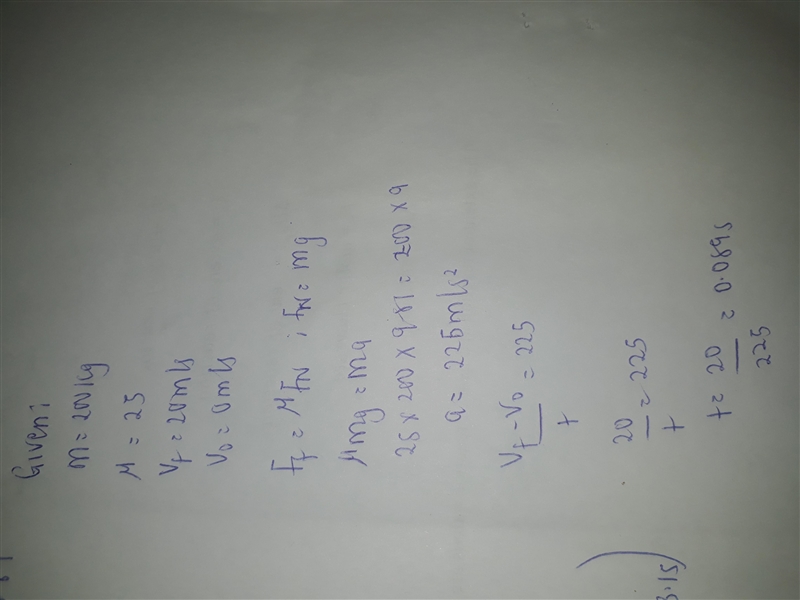 Given:
m = 200kg
μ = 25
Vf = 20m/s
V0 = 0m/s
Ff = μFN ; FN = mg
μmg = ma
25 × 200 × 9.81 = 200 × a
a = 225m/s²
Vf - V0 / t = 225
20 / t = 225
t = 20 / 225 = 0.089s
3.15)